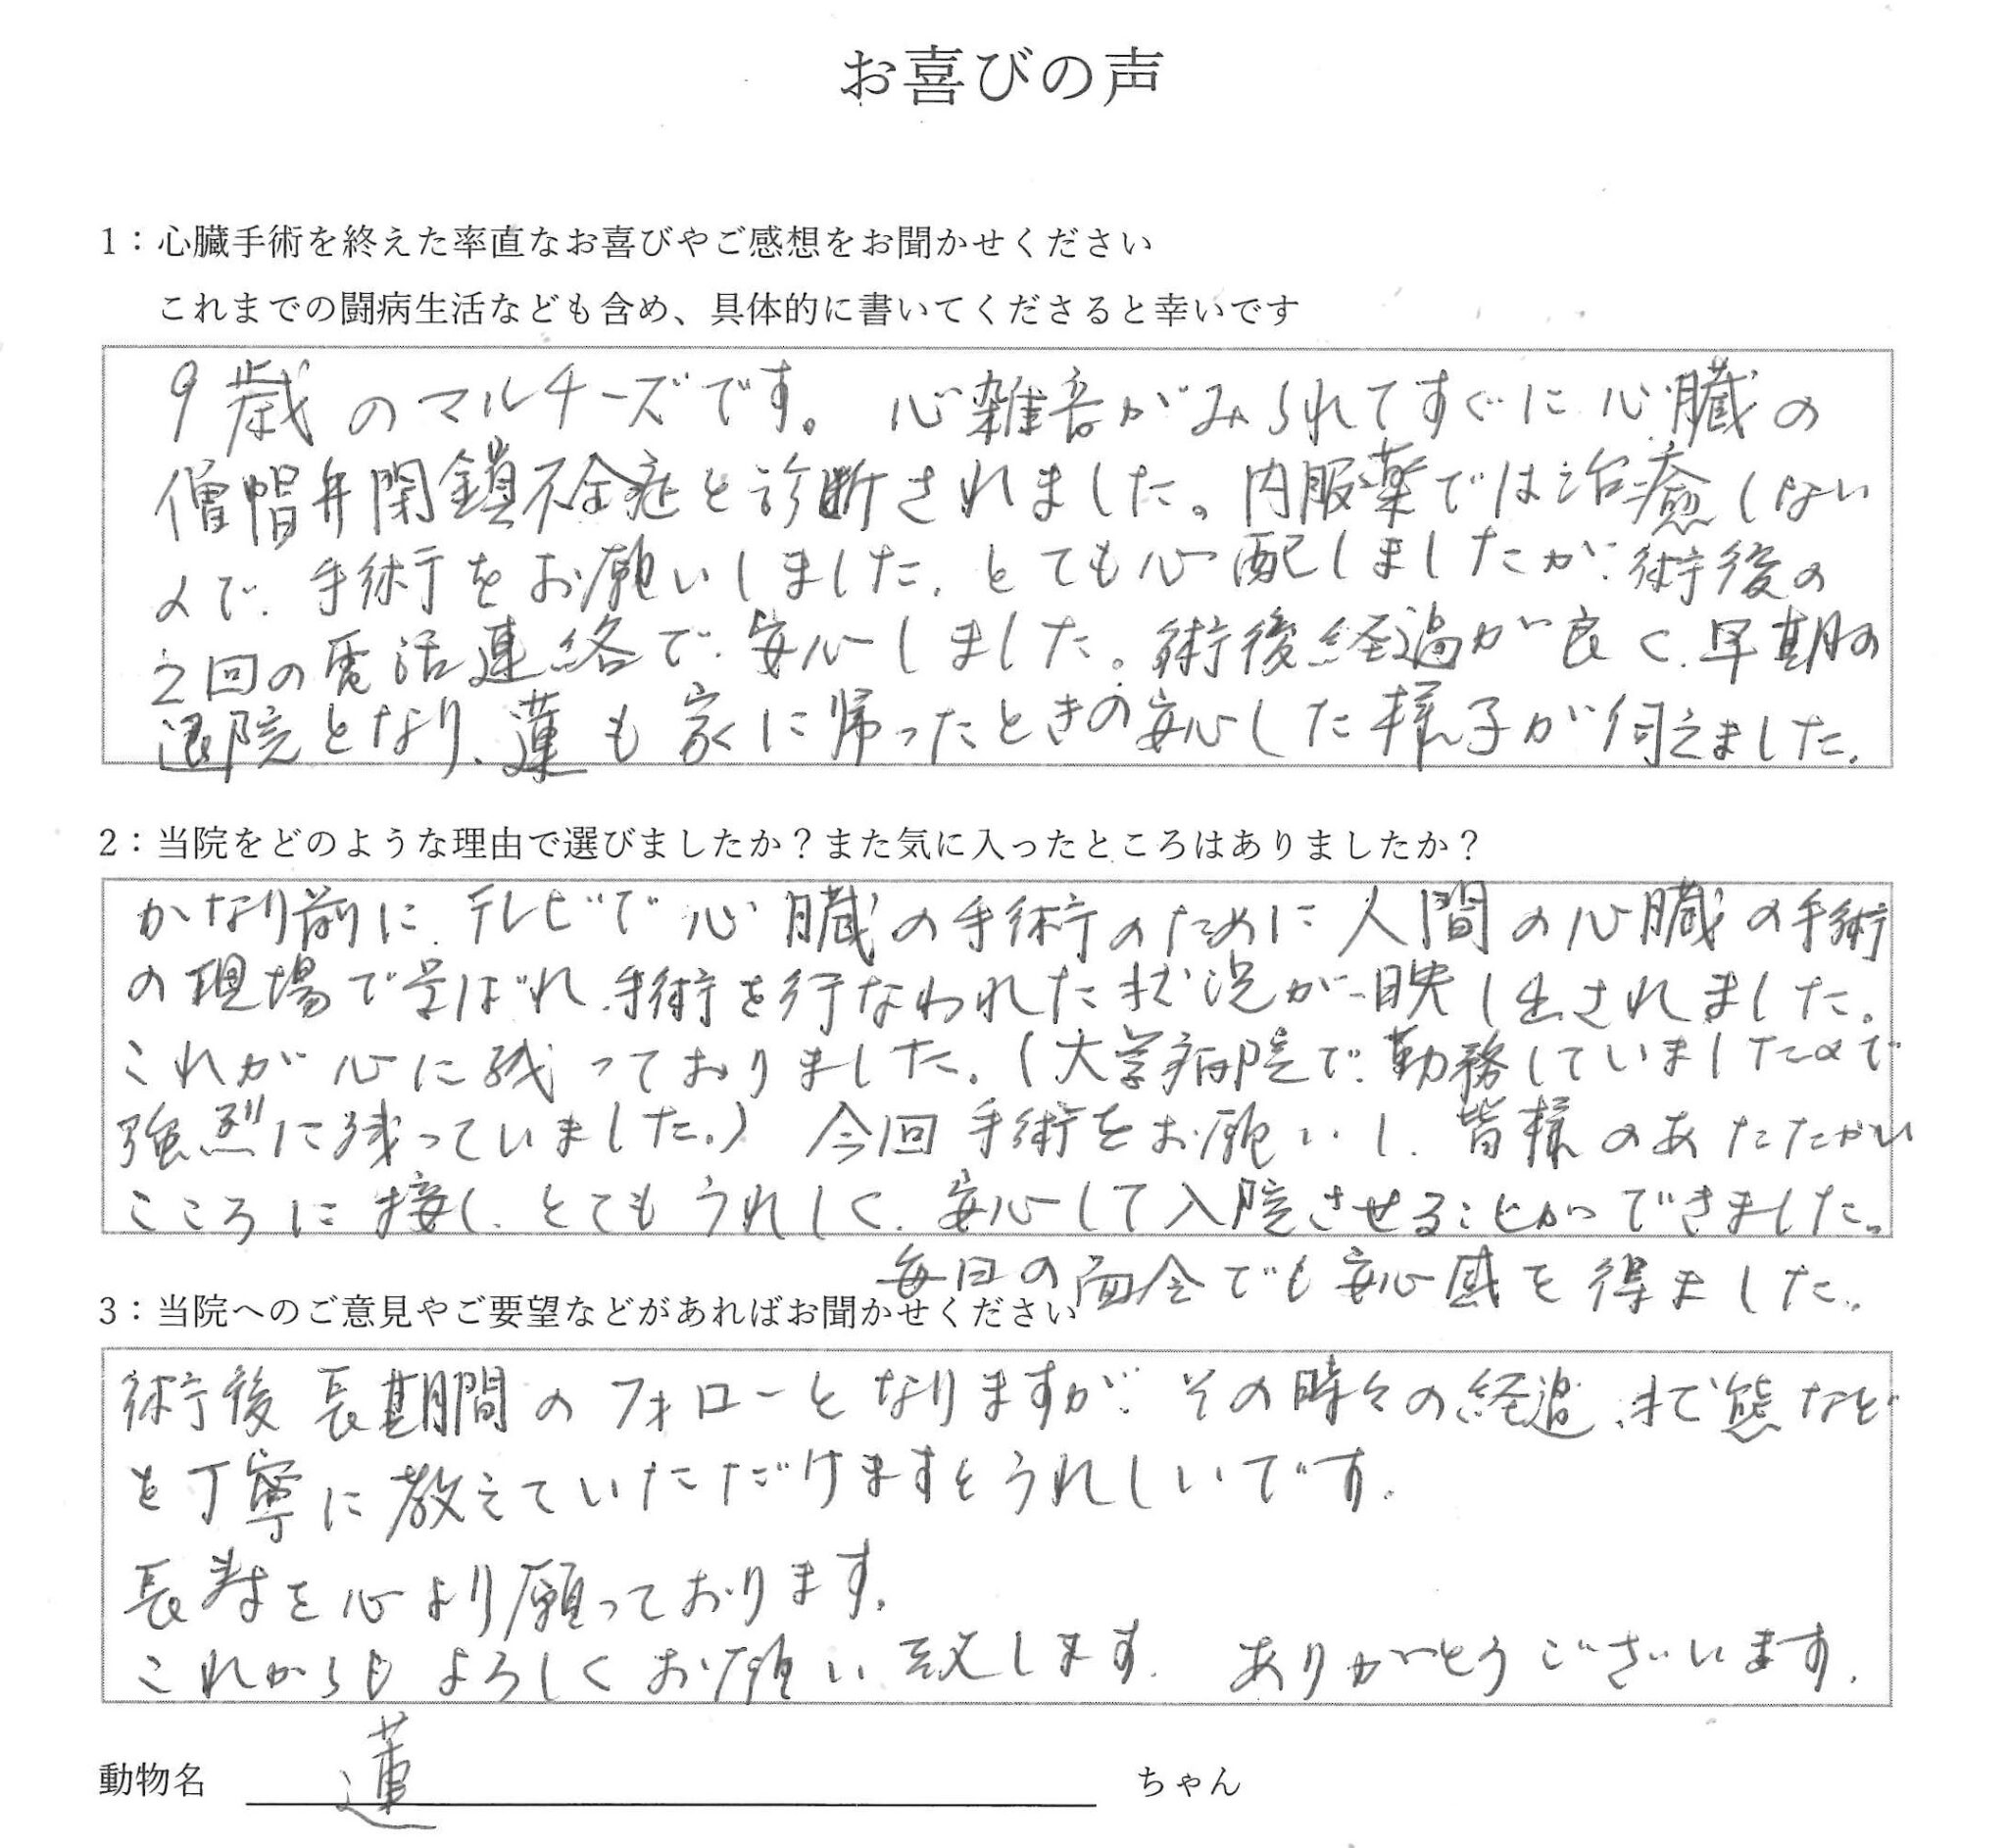 お喜びの声
1：心臓手術を終えた率直なお喜びやご感想をお聞かせください
これまでの闘病生活なども含め、具体的に書いてくださると幸いです
9歳のマルチーズです。心雑音がみられてすぐに心臓の
僧帽弁閉鎖不全症と診断されました。内服薬では治癒しない
ので、手術をお願いしました。とても心配しましたが、術後の
2回の電話連絡で、安心しました。術後経過が良く、早期の
退院となり、蓮も家に帰ったときの安心した様子が伺えました。
2：当院をどのような理由で選びましたか？また気に入ったところはありましたか？
かなり前に、テレビで心臓の手術のために人間の心臓の手術
の現場で呼ばれ、手術を行なわれた状況が映し出されました。
これが心に残っておりました。(大学病院で勤務していましたので
強烈に残っていました。) 今回手術をお願いし、皆様のあたたかい
こころに接し、とてもうれしく、安心して入院させることができました。
毎日の面会でも安心感を得ました。
3：当院へのご意見やご要望などがあればお聞かせください
術後長期間のフォローとなりますが、その時々の経過、状態など
を丁寧に教えていただけますとうれしいです。
長寿を心より願っております。
これからもよろしくお願い致します。ありがとうございます。
動物名 蓮 ちゃん